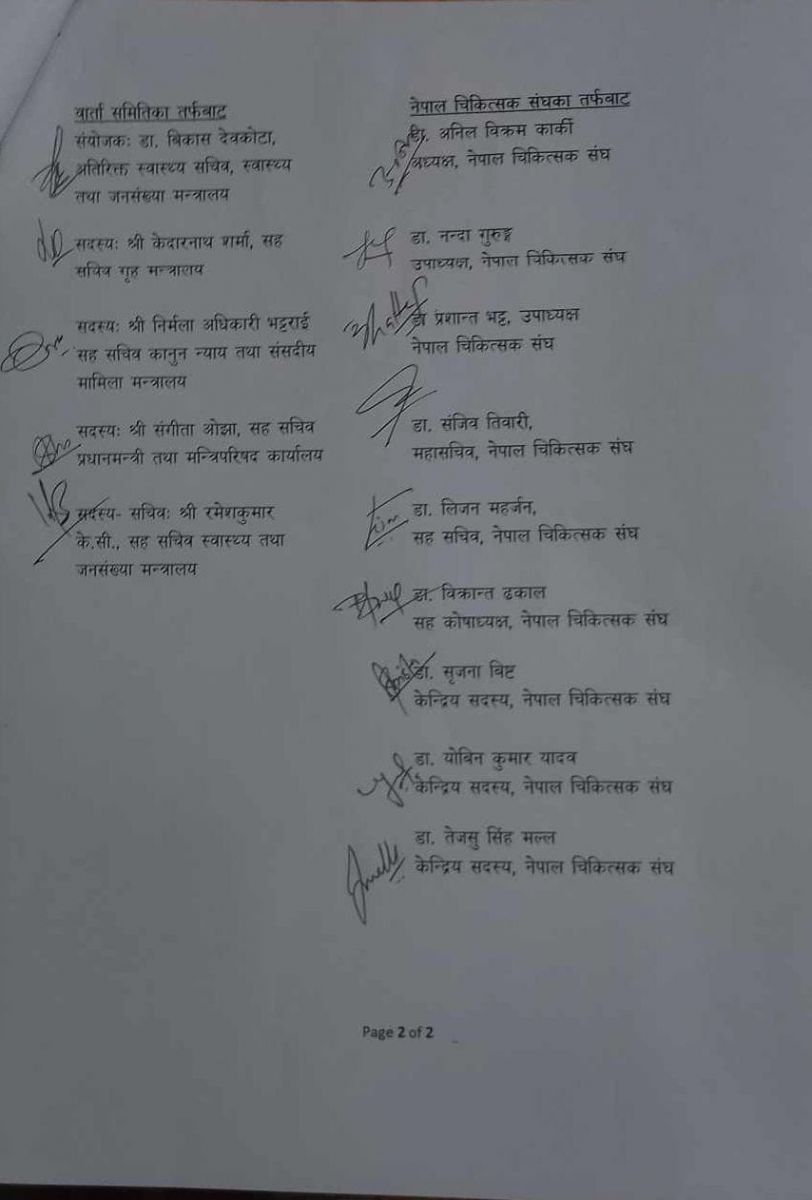 वार्ता समितिका तर्फबाट
संयोजकः डा. बिकास देवकोटा,
अतिरिक्त स्वास्थ्य सचिव, स्वास्थ्य
तथा जनसंख्या मन्त्रालय
सदस्यः श्री केदारनाथ शर्मा, सह
सचिव गृह मन्त्रालय
सदस्यः श्री निर्मला अधिकारी भट्टराई
सह सचिव कानुन न्याय तथा संसदीय
मामिला मन्त्रालय
सदस्यः श्री संगीता ओझा, सह सचिव
प्रधानमन्त्री तथा मन्त्रिपरिषद कार्यालय
सदस्य- सचिवः श्री रमेशकुमार
के.सी., सह सचिव स्वास्थ्य तथा
जनसंख्या मन्त्रालय
नेपाल चिकित्सक संघका तर्फबाट
डा. अनिल विक्रम कार्की
अध्यक्ष, नेपाल चिकित्सक संघ
डा. नन्दा गुरुङ्ग
उपाध्यक्ष, नेपाल चिकित्सक संघ
डा प्रशान्त भट्ट, उपाध्यक्ष
नेपाल चिकित्सक संघ
डा. संजिव तिवारी,
महासचिव, नेपाल चिकित्सक संघ
डा. लिजन महर्जन,
सह सचिव, नेपाल चिकित्सक संघ
डा. विक्रान्त ढकाल
सह कोषाध्यक्ष, नेपाल चिकित्सक संघ
डा. सृजना बिष्ट
केन्द्रिय सदस्य, नेपाल चिकित्सक संघ
डा. योबिन कुमार यादव
केन्द्रिय सदस्य, नेपाल चिकित्सक संघ
डा. तेजसु सिंह मल्ल
केन्द्रिय सदस्य, नेपाल चिकित्सक संघ
Page 2 of 2